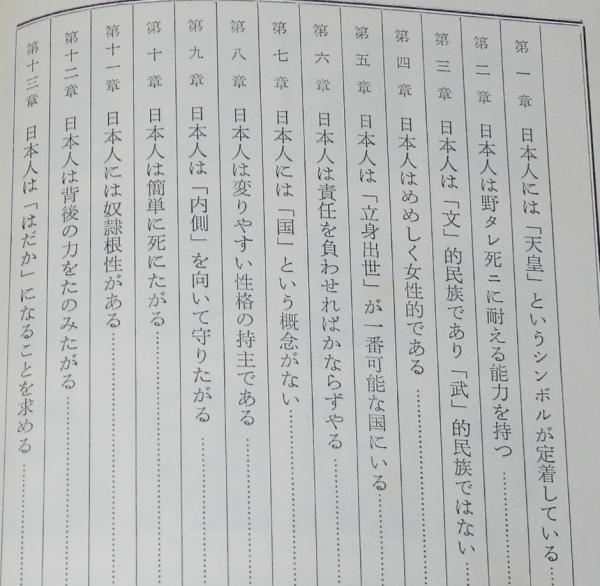 第一章 日本人には「天皇」というシンボルが定着している……
第二章 日本人は野タレ死ニに耐える能力を持つ……
第三章 日本人は「文」的民族であり「武」的民族ではない……
第四章 日本人はめめしく女性的である……
第五章 日本人は「立身出世」が一番可能な国にいる……
第六章 日本人は責任を負わせればかならずやる……
第七章 日本人には「国」という概念がない……
第八章 日本人は変りやすい性格の持主である……
第九章 日本人は「内側」を向いて守りたがる……
第十章 日本人は簡単に死にたがる……
第十一章 日本人には奴隷根性がある……
第十二章 日本人は背後の力をたのみたがる……
第十三章 日本人は「はだか」になることを求める……